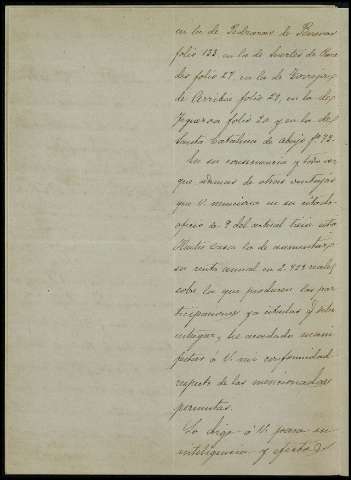 en la de Pedrazas de Penosa
folio 133 en la de Suertes de
des folio 27 en la de Torrejon
de Arriba folio 29, en la de
Figueroa folio 20 y en la de
Santa Catalina de abajo fº 92.
En su consecuencia y toda vez
que ademas de otras ventajas
que V. menciona en su citado
oficio de 9 del actual tiene esta
Ilustre Casa la de aumentar
su renta annual en 2.929 reales
sobre la que producen las par
ticipaciones ya citadas y
integras, he acordado mani
festar á V. mi conformidad
respecto de las mencionadas
permutas.
Lo digo á V. para su
inteligencia y efectos